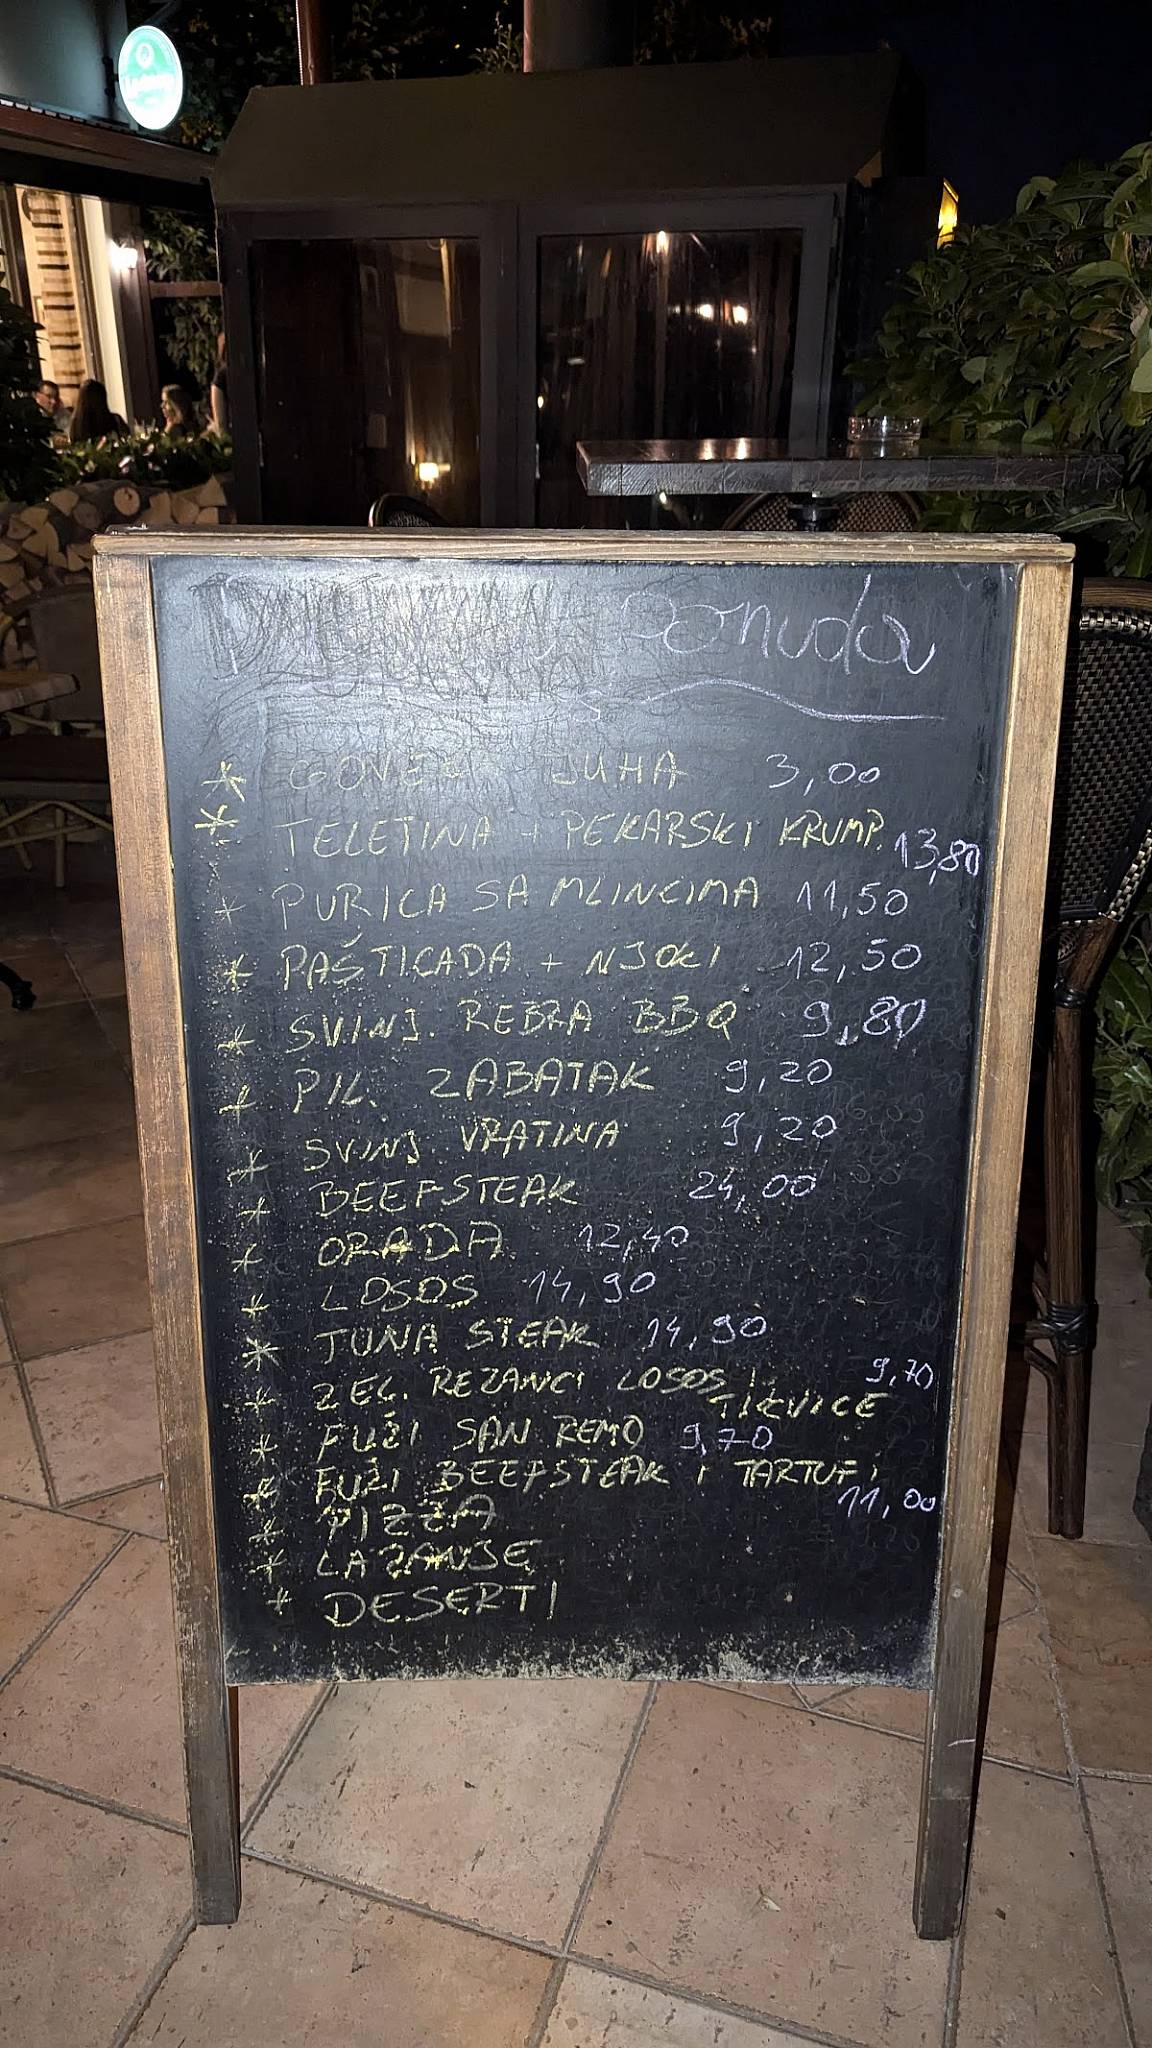 Ponuda
* GOVEĐ JUHA 3,00
* TELETINA + PEKARSKI KRUMP. 13,80
* PURICA SA MLINCIMA 11,50
* PAŠTICADA + NJOKI 12,50
* SVINJ. REBRA BBQ 9,80
* PIL. ZABATAK 9,20
* SVINJ. VRATINA 9,20
* BEEFSTEAK 24,00
* ORADA 12,40
* LOSOS 14,90
* TUNA STEAK 14,90
* ZEL. REZANCI LOSOS I 9,70
TIKVICE
* FUŽI SAN REMO 9,70
* FUŽI BEEFSTEAK I TARTUFI
11,00
* PIZZA
* LAZANJE
* DESERTI